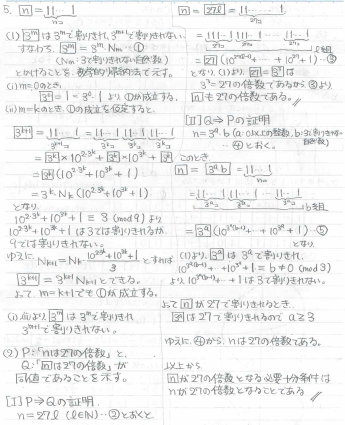 5. [n] = 11…1
n個
(1) [3^m] は 3^m で割りきれ, 3^{m+1} で割りきれない.
すなわち, [3^m] = 3^m・Nm …①
(Nm:3で割りきれない自然数)
とかけることを, 数学的帰納法で示す.
(i) m=0のとき,
[3^0] = 1 = 3^0・1 より①が成立する.
(ii) m=kのとき, ①の成立を仮定すると,
[3^{k+1}] = 11…1 11…1 11…1
3^k個 3^k個 3^k個
= [3^k]×10^{2・3^k} + [3^k]×10^{3^k} + [3^k]
= [3^k](10^{2・3^k} + 10^{3^k} + 1)
= 3^k N_k (10^{2・3^k} + 10^{3^k} + 1)
となり
10^{2・3^k} + 10^{3^k} + 1 ≡ 3 (mod 9) より
10^{2・3^k} + 10^{3^k} + 1 は3では割りきれるが,
9では割りきれない.
ゆえに N_{k+1} = N_k・(10^{2・3^k} + 10^{3^k} + 1)/3 とすれば
[3^{k+1}] = 3^{k+1} N_{k+1} とできる.
よって m=k+1でも①が成立する.
(i),(ii)より, [3^m] は 3^m で割りきれ
3^{m+1} で割りきれない.
(2) P:「nは27の倍数」と,
Q:「[n]は27の倍数」が
同値であることを示す.
[I] P⇒Qの証明
n=27l (l∈N) …② とおくと
[n] = [27l] = 11……1
27l個
= 11…1 11…1 … 11…1
27個 27個 27個
l組
= [27] (10^{27(l-1)} + … + 10^{27} + 1) …③
となり, (1)より, [27] = [3^3] は
3^3=27の倍数であるから③より
[n] も27の倍数である.
[II] Q⇒Pの証明
n=3^a・b (a:0以上の整数, b:3で割りきれない自然数)
…④とおく.
このとき,
[n] = [3^a・b] = 11……1
3^a・b個
= 11…1 11…1 … 11…1
3^a個 3^a個 3^a個
b組
= [3^a] (10^{3^a(b-1)} + … + 10^{3^a} + 1) …⑤
となり
(1)より, [3^a] は 3^a で割りきれ,
10^{3^a(b-1)} + … + 10^{3^a} + 1 ≡ b ≢ 0 (mod 3)
より 10^{3^a(b-1)} + … + 1 は3で割りきれない.
よって [n] が27で割りきれるとき,
[3^a] は27で割りきれるので a≧3
ゆえに ④から, nは27の倍数である.
以上から
[n] が27の倍数となる必要十分条件は
nが27の倍数となることである